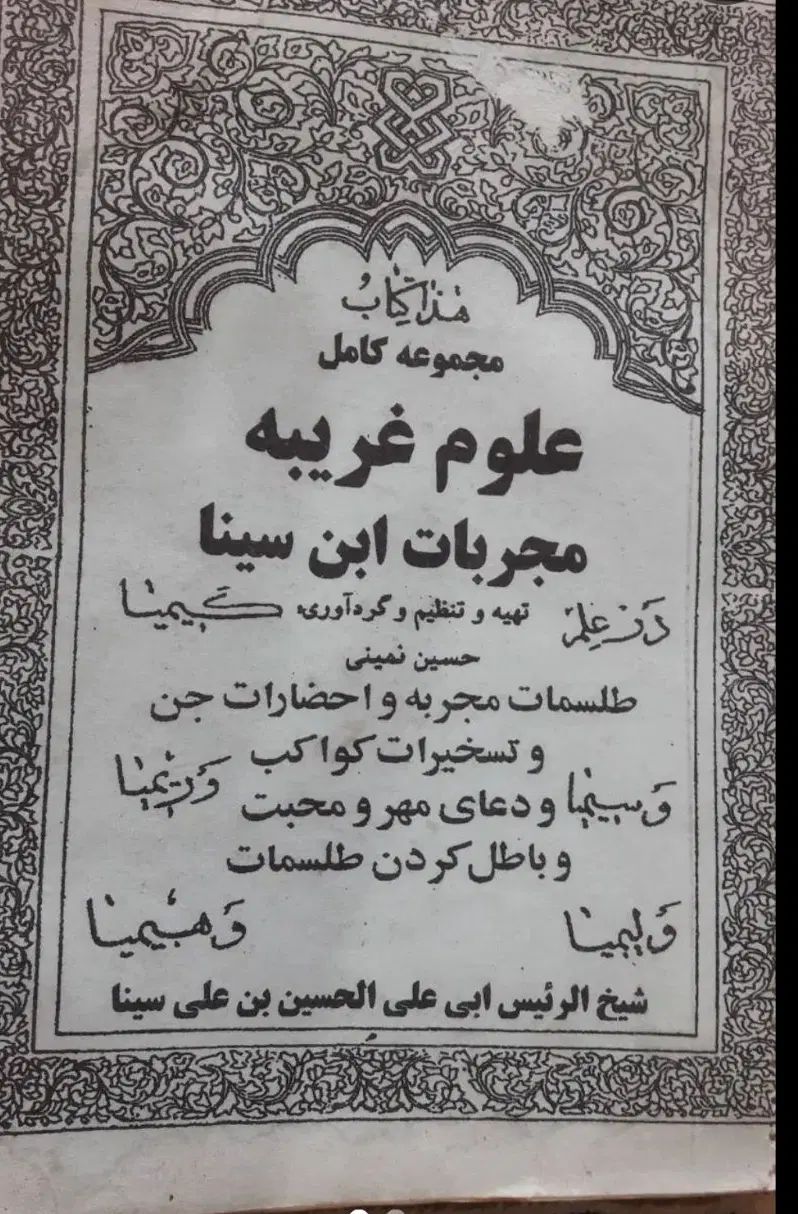 هذا كِتابُ
مجموعه کامل
علوم غریبه
مجربات ابن سینا
دَر عِلم
تهیه و تنظیم و گردآوری:
کیمیا
حسین نمینی
طلسمات مجربه و احضارات جن
و تسخیرات کواکب
وَ ریمیا
وَ سیمیا
و دعای مهر و محبت
و باطل کردن طلسمات
وَ لیمیا
وَ هیمیا
شیخ الرئیس ابی علی الحسین بن علی سینا